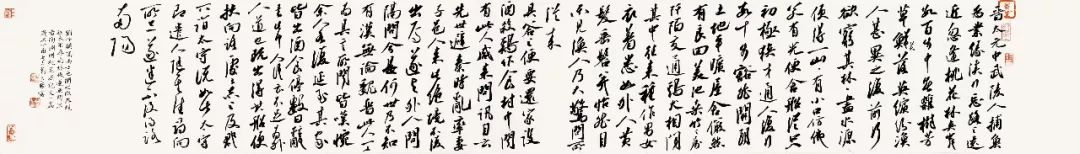 晉太元中武陵人捕魚
為業緣溪行忘路之遠
近忽逢桃花林夾岸
數百步中無雜樹芳
草鮮美落英繽紛漁
人甚異之復前行
欲窮其林林盡水源
便得一山山有小口仿佛
若有光便舍船從口入
初極狹才通人復行
數十步豁然開朗
土地平曠屋舍儼然
有良田美池桑竹之屬
阡陌交通雞犬相聞
其中往來種作男女
衣著悉如外人黃
髮垂髫并怡然自
樂見漁人乃大驚問所
從來
具答之便要還家設
酒殺雞作食村中聞
有此人咸來問訊自云
先世避秦時亂率妻
子邑人來此絕境不復
出焉遂與外人間
隔問今是何世乃不知
有漢無論魏晉此人一一
為具言所聞皆嘆惋
餘人各復延至其家
皆出酒食停數日辭
去此中人語云不足為外
人道也既出得其船便
扶向路處處志之及郡
下詣太守說如此太守
即遣人隨其往尋向
所志遂迷不復得路
南陽